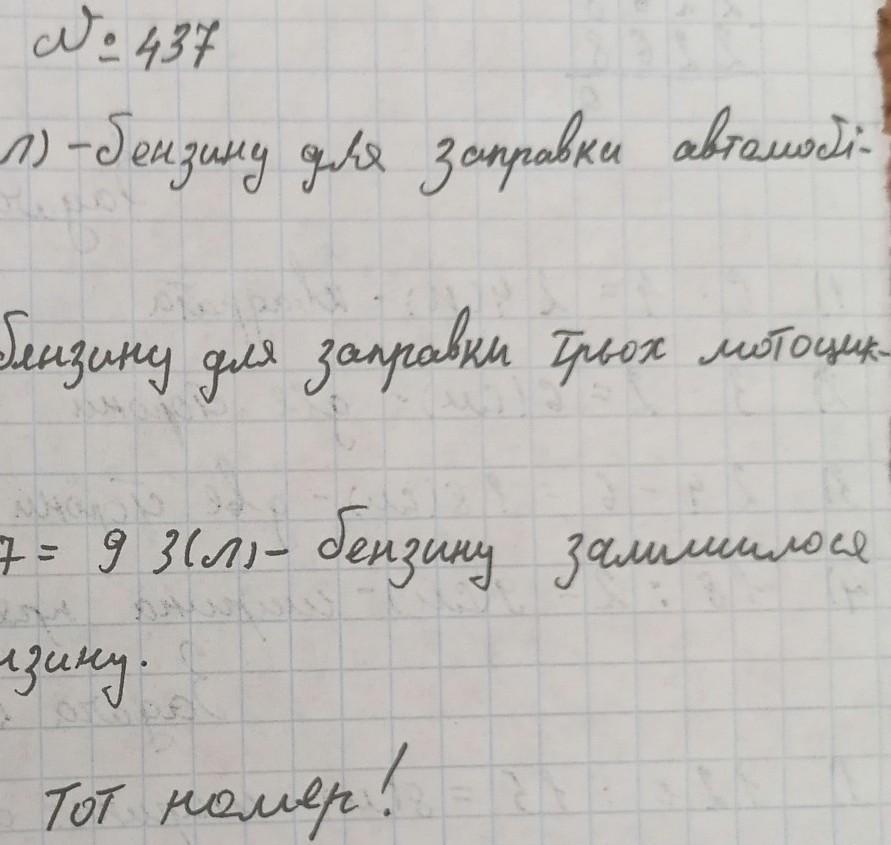 № 437
л) - бензину для заправки автомобі-
бензину для заправки трьох мотоцик-
7 = 9 3(л) - бензину залишилося
нзину.
Тот номер!